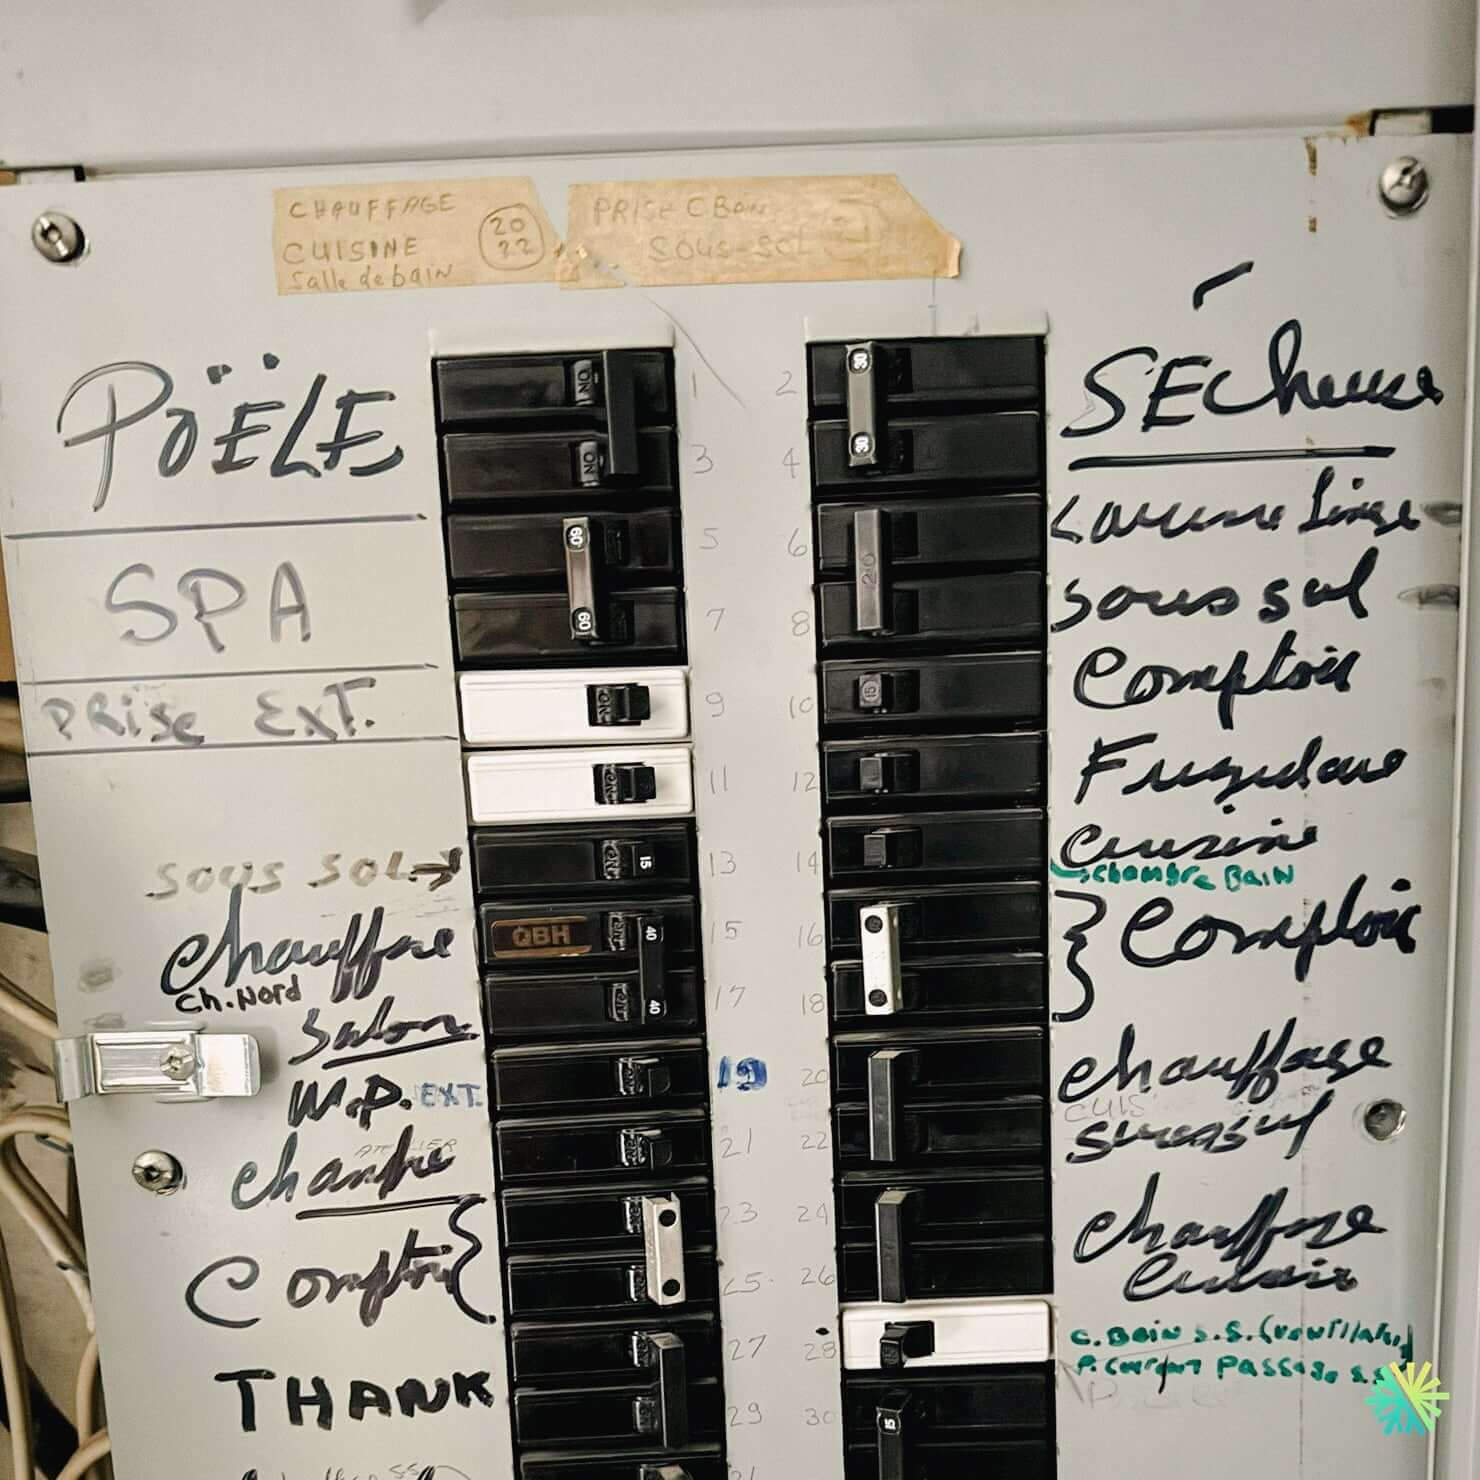 CHAUFFAGE
CUISINE
Salle de bain
20
22
PRISE C BAIN
SOUS-SOL
PÖELE
SÉCheuse
ON
1
2
30
ON
3
4
30
SPA
60
5
6
20
Laveuse Linge
60
7
8
sous sol
PRISE EXT.
ON
9
10
15
Comptoir
ON
11
12
Frigidaire
SOUS SOL→
ON
15
13
14
Cuisine
chambre BAIN
chauffage
Ch. Nord
QBH
40
15
16
Comptoir
40
17
18
Salon
W.P. EXT.
19
20
Chauffage
CUIS
sous sol
ATELIER
chambre
21
22
Comptoir
ON
23
24
Chauffage
25
26
THANK
27
28
C. Bain S.S.
P. Passage S.S.
29
30
15
31